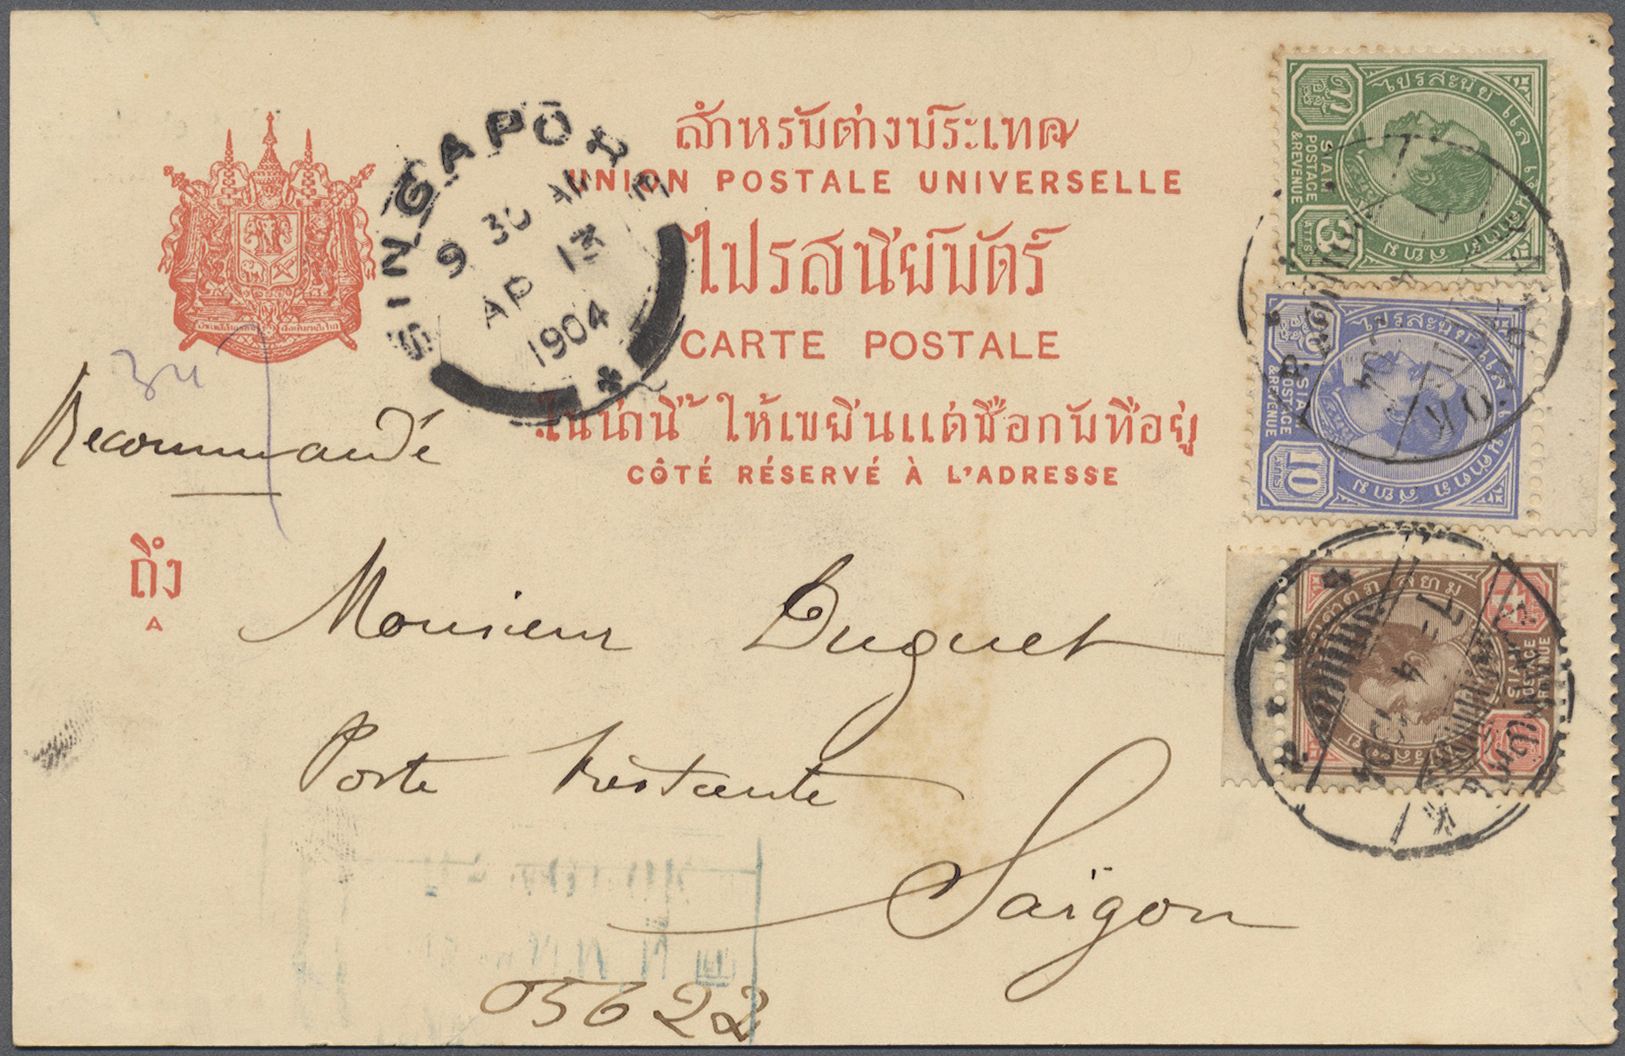 สำหรับต่างประเทศ
UNION POSTALE UNIVERSELLE
ไปรสนีย์บัตร์
CARTE POSTALE
ในน่านี้ ให้เขียนแต่ชื่อกับที่อยู่
CÔTÉ RÉSERVÉ À L'ADRESSE
SINGAPORE
9 30 AM
AP 13
1904
Recommandé
ถึง
A
Monsieur Duguet
Poste Restante
Saïgon
05622
ไปรสะนีย แล
สยาม
SIAM
POSTAGE
&REVENUE
3
ATTS
SIAM
POSTAGE
&REVENUE
10
สยาม
SIAM
POSTAGE
&REVENUE